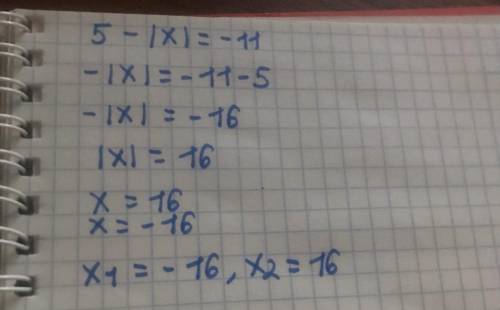 5 - |x| = -11
-|x| = -11-5
-|x| = -16
|x| = 16
x = 16
x = -16
x1 = -16, x2 = 16